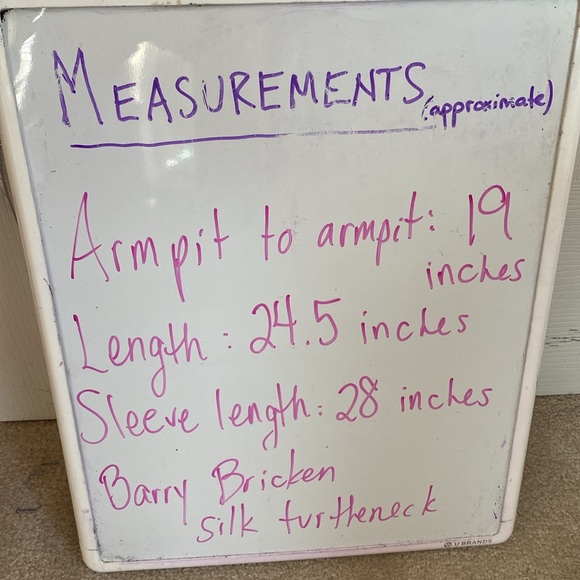 MEASUREMENTS (approximate)
Armpit to armpit: 19
inches
Length: 24.5 inches
Sleeve length: 28 inches
Barry Bricken
silk turtleneck
U BRANDS